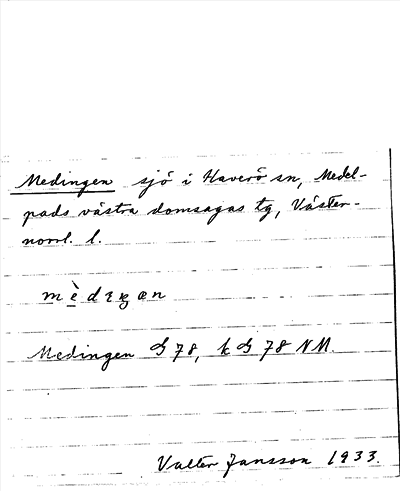 Medingen sjö i Haverö sn, Medel-
pads västra domsagas tg, Väster-
norrl. l.
Medingen G 78, k G 78 NM.
Valter Jansson 1933.